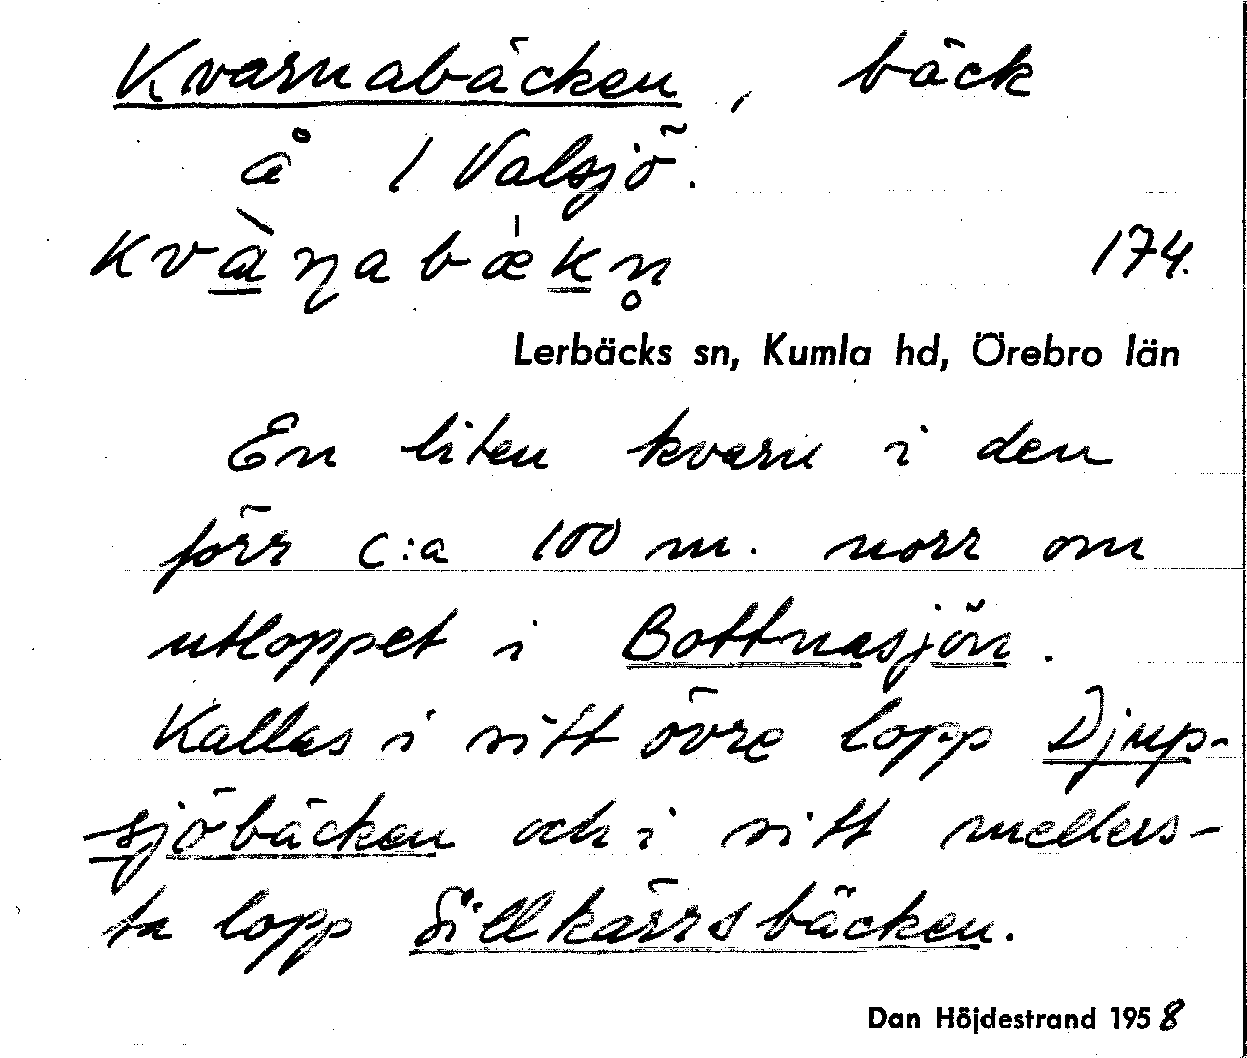 Kvarnabäcken, bäck
å 1 Valsjö.
kvànabækn̥ 174.
Lerbäcks sn, Kumla hd, Örebro län
En liten kvarn i den
förr c:a 100 m. norr om
utloppet i Bottnasjön.
Kallas i sitt övre lopp Djup-
sjöbäcken och i sitt mellers-
ta lopp Sillkärrsbäcken.
Dan Höjdestrand 1958